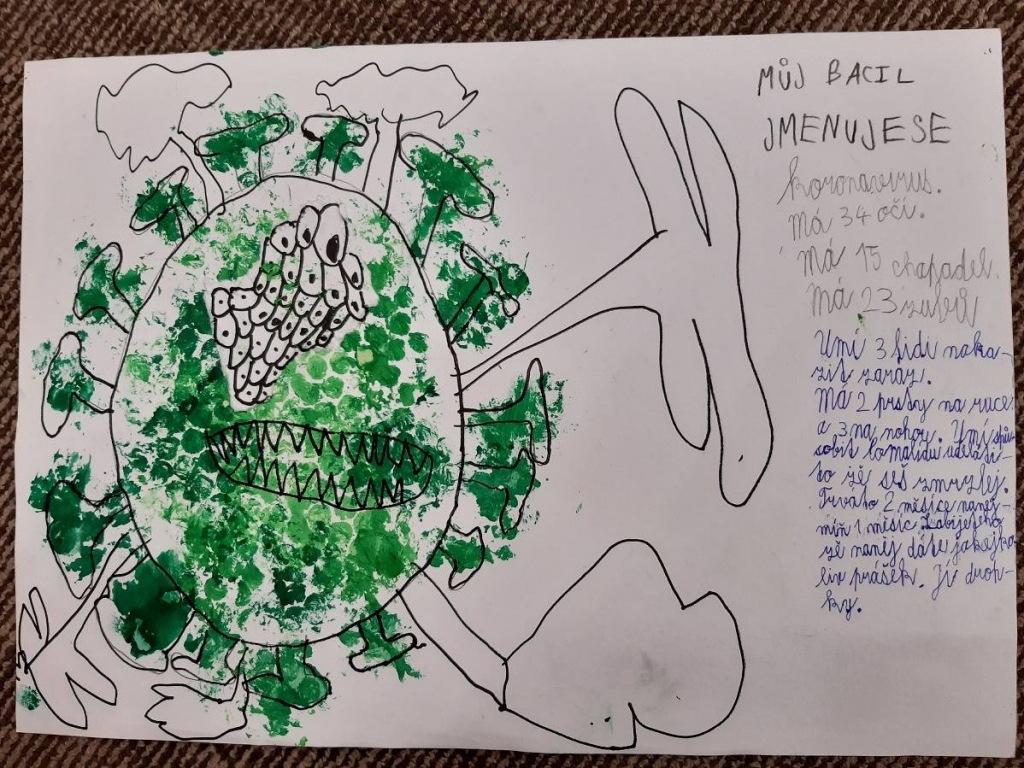 MŮJ BACIL
JMENUJESE
koronavirus.
Má 34 očí.
Má 15 chapadel.
Má 23 zubů
Umí 3 lidi naka-
zit naráz.
Má 2 prsty na ruce
a 3 na nohou. Umí způ-
sobit
to žě seš zmrzlej.
Trvá to 2 měsíce nanej-
míň 1 měsíc zabijeť ho
žě naněj dáte jakejko-
liv prášek. Jí drob-
ky.